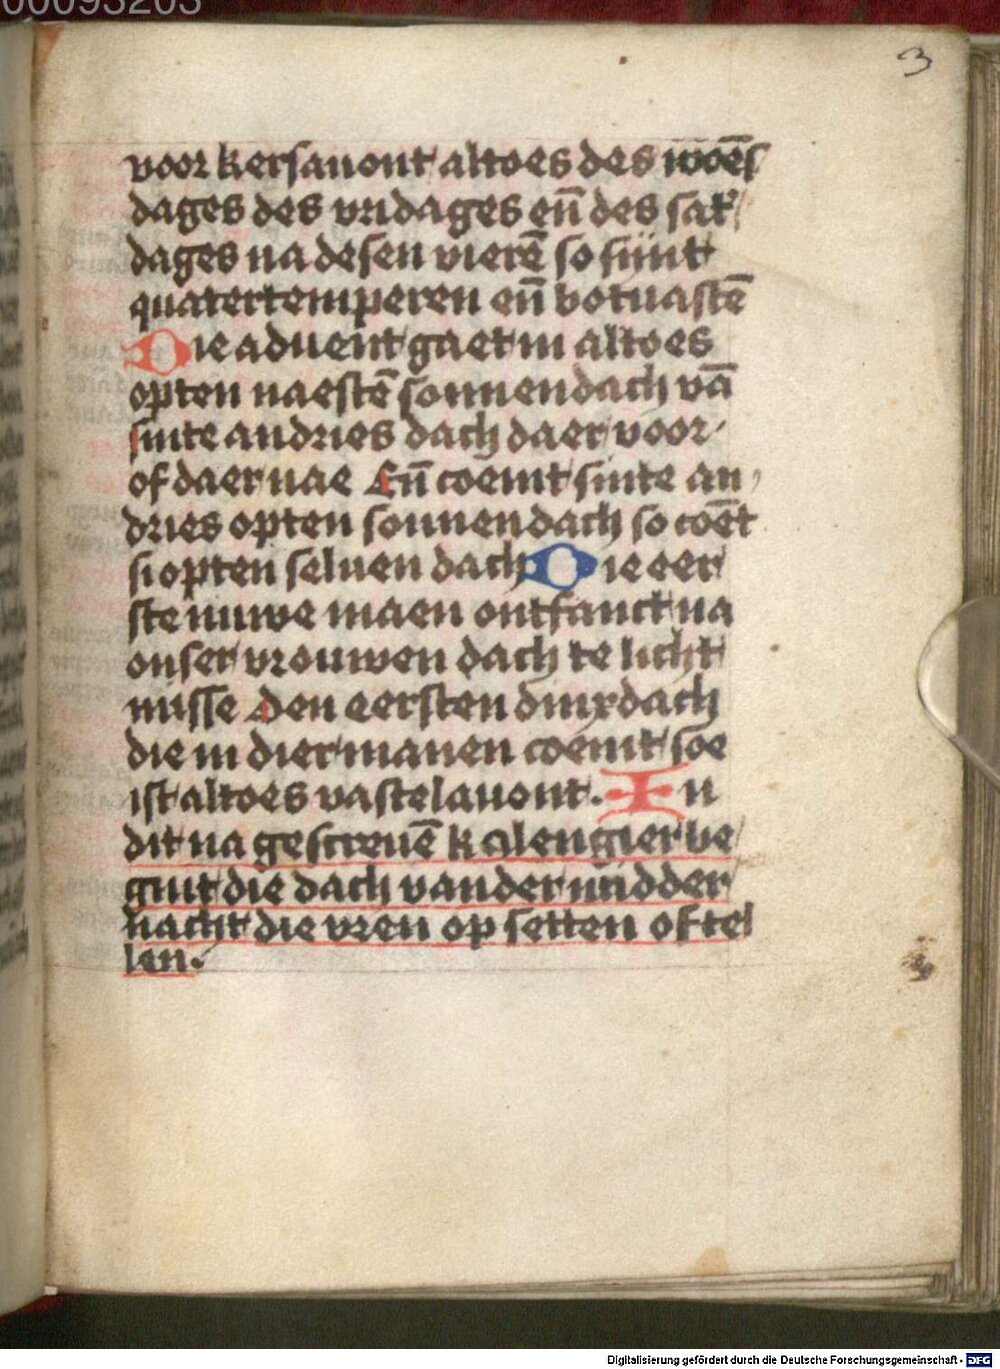 00093203
3
voor kersauont altoes des woēs
dages des vridages eñ des sat͛
dages na desen vierē so sijnt
quatertemperen eñ botuastē
Die aduent gaet in altoes
opten naestē sonnendach vā
sinte andries dach daer voor
of daer nae Eñ coemt sinte an
dries opten sonnendach so coēt
si opten seluen dach Die eer
ste nuwe maen ontfanct na
onser vrouwen dach te licht
misse Den eersten dinxdach
die in dier manen coemt soe
ist altoes vastelauont. In
dit na gescreuē kalengier be
gint die dach van der midder
nacht die vren op setten of tel
len.
Digitalisierung gefördert durch die Deutsche Forschungsgemeinschaft - DFG